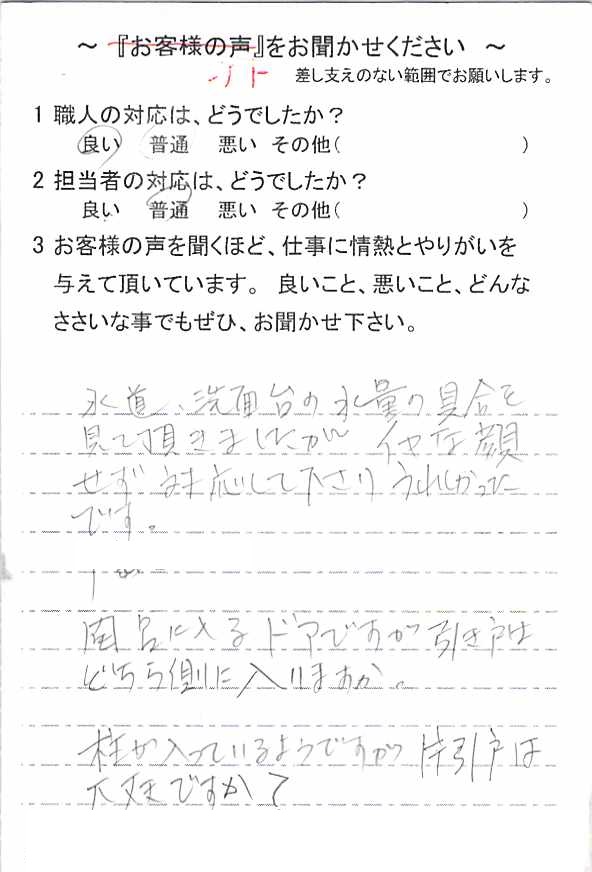 ～ 『お客様の声』をお聞かせください ～
差し支えのない範囲でお願いします。
1 職人の対応は、どうでしたか？
良い 普通 悪い その他( )
2 担当者の対応は、どうでしたか？
良い 普通 悪い その他( )
3 お客様の声を聞くほど、仕事に情熱とやりがいを
与えて頂いています。 良いこと、悪いこと、どんな
ささいな事でもぜひ、お聞かせ下さい。
水道、洗面台の水量の具合を
見て頂きましたが イヤな顔
せず 対応して下さり うれしかった
です。
風呂に入る ドアですが 引き戸は
どちら側に 入りますか。
柱が入っているようですが 片引戸は
大丈夫ですか？